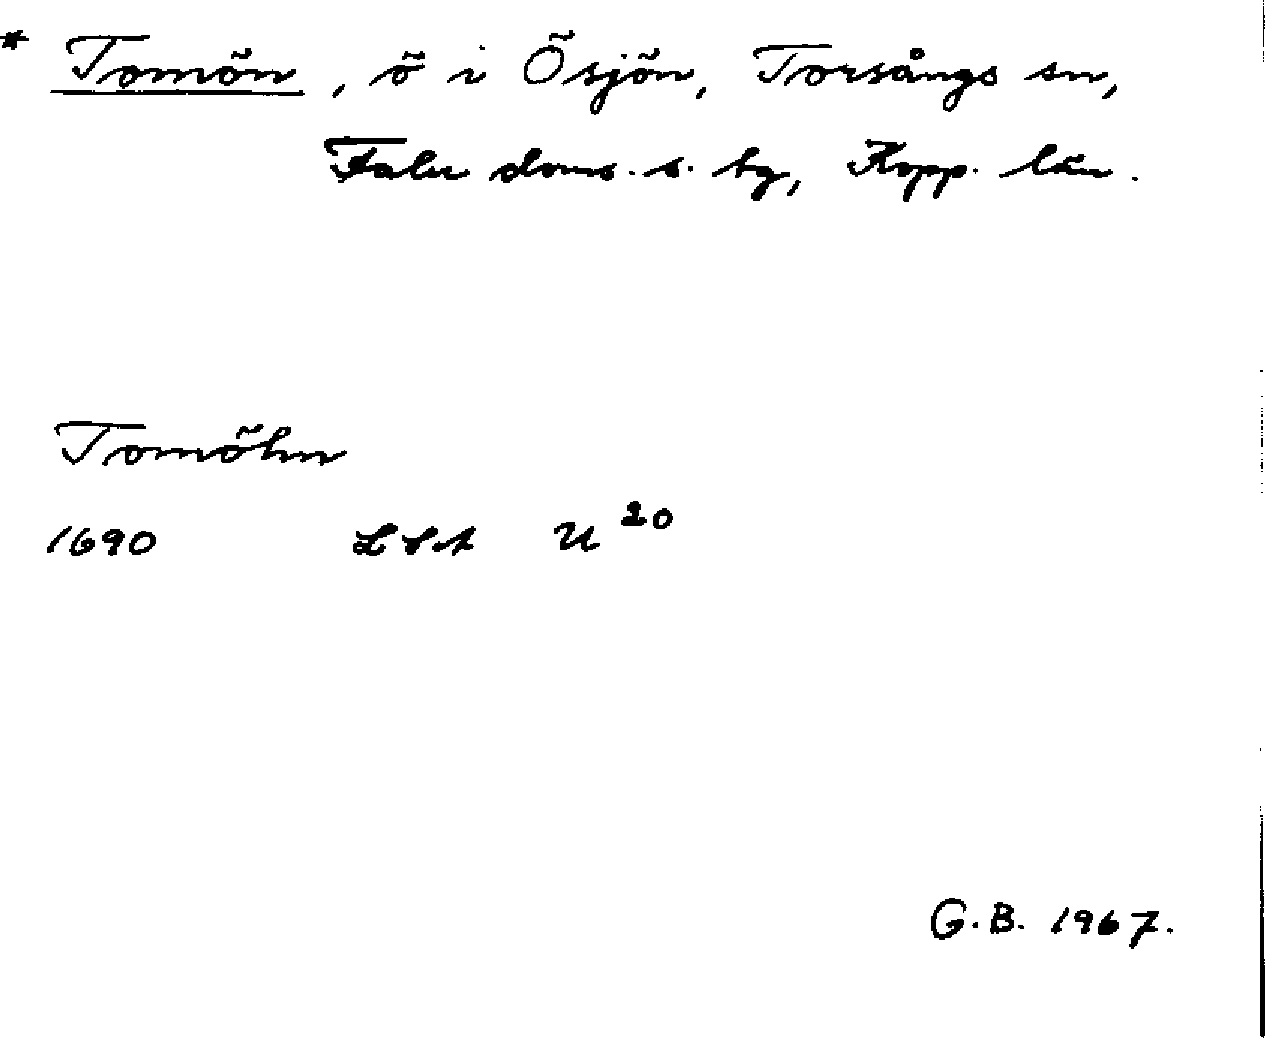 * Tomön, ö i Ösjön, Torsångs sn,
Falu doms. s. tg, Kopp. län.
Tomöhn
1690 LSA U 20
G.B. 1967.